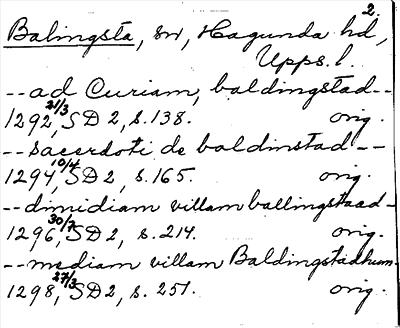 2.
Balingsta, sn, Hagunda hd,
Upps. l.
--ad Curiam, baldingstad--
1292 21/3, SD 2, s. 138. orig.
--sacerdoti de baldinstad--
1294 10/4, SD 2, s. 165. orig.
--dimidiam villam ballingstaad-
1296 30/7, SD 2, s. 214. orig.
--mediam villam Baldingstadhum-
1298 27/3, SD 2, s. 251. orig.